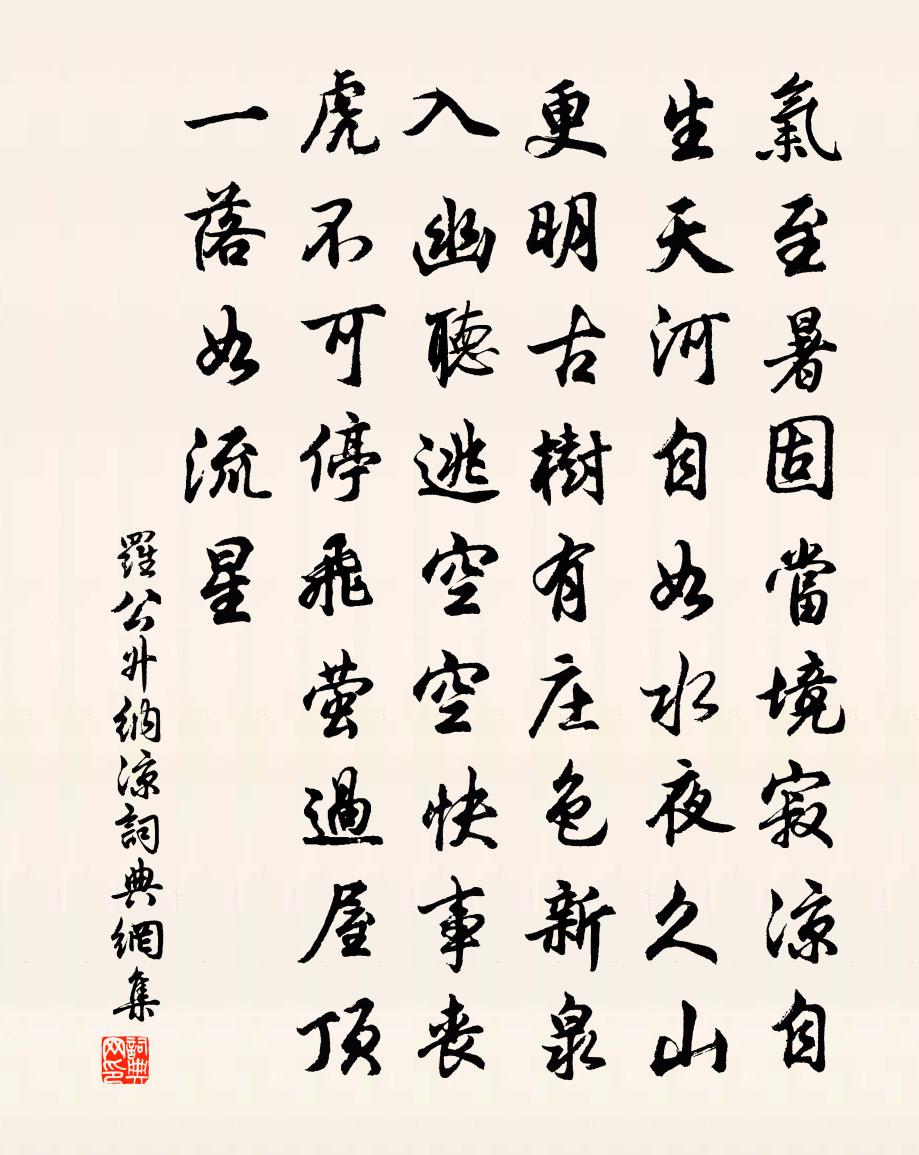 氣至暑固當境寂涼自
生天河自如水夜久山
更明古樹有庄色新泉
入幽聽逃空空快事丧
虎不可停飛萤過屋頂
一落如流星
羅公升纳凉詞典網集
詞典网印